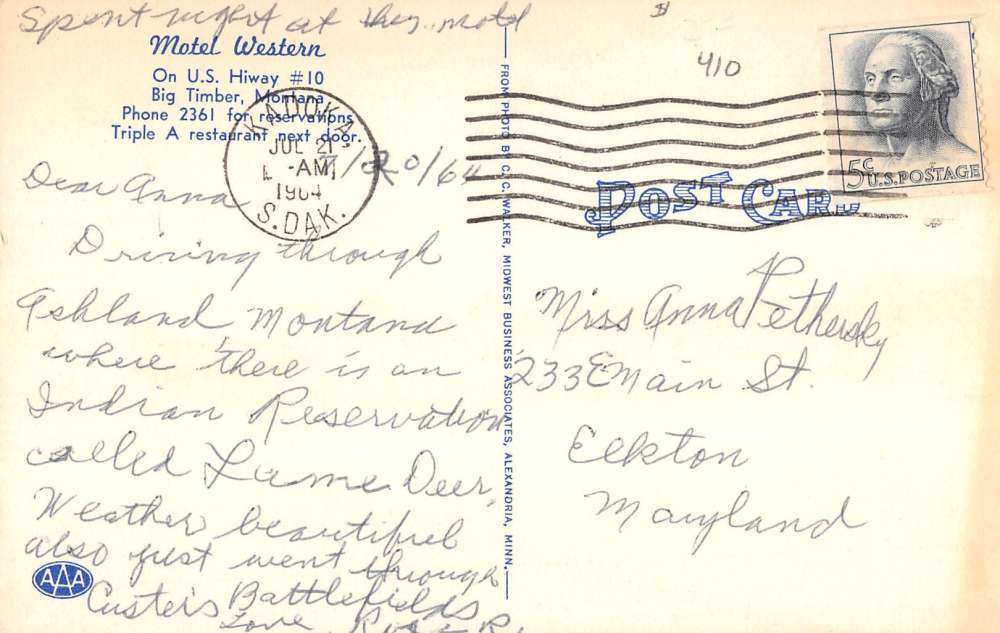 Spent night at this motel
Motel Western
On U.S. Hiway #10
Big Timber, Montana
Phone 2361 for reservations
Triple A restaurant next door.
KADOKA,
JUL 21
-AM
1964
S. DAK.
7/20/64
Dear Anna
Driving through
Ashland, Montana
where there is an
Indian Reservation
called Lame Deer,
Weather beautiful
also just went through
Custer's Battlefields
Love, Rose R.
AAA
FROM PHOTO BY C. C. WALKER, MIDWEST BUSINESS ASSOCIATES, ALEXANDRIA, MINN.
410
5¢ U.S. POSTAGE
POST CARD
Miss Anna Pethersky
233 E Main St.
Elkton
Maryland